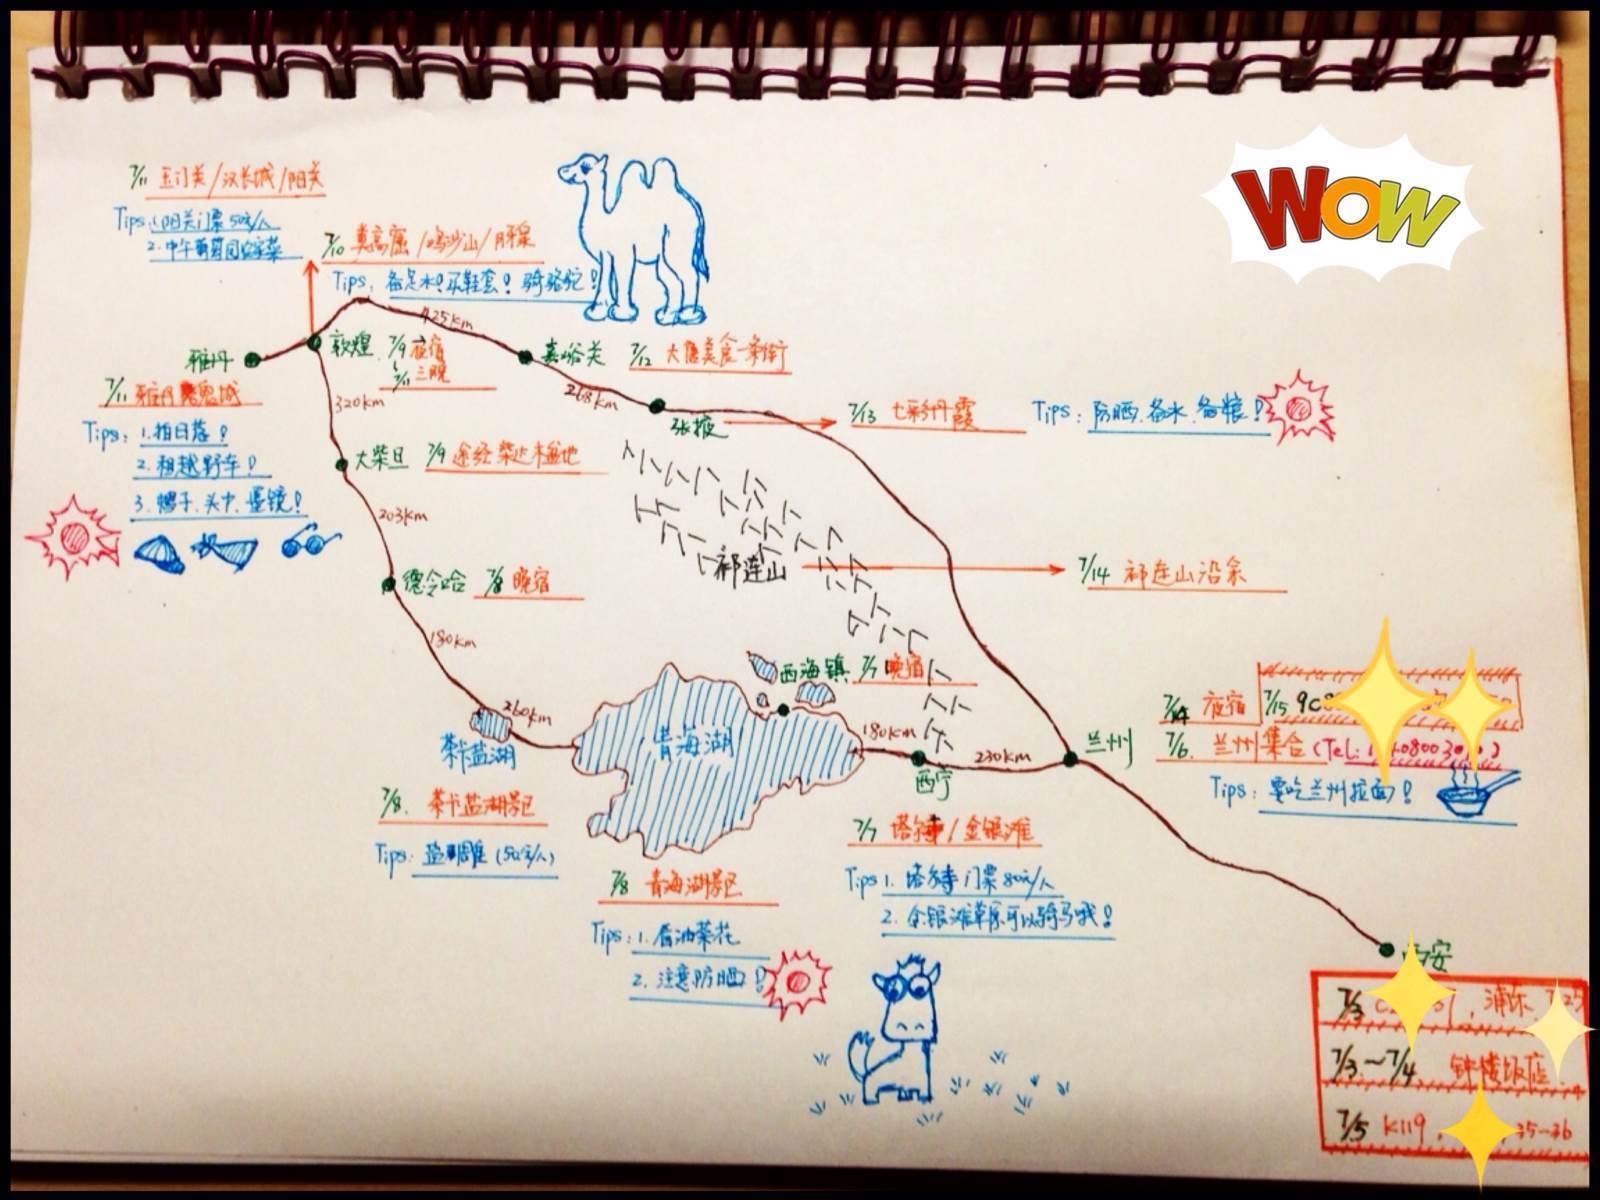 WOW
7/11 玉门关/汉长城/阳关
Tips: 1.阳关门票50元/人
2.中午葡萄园农家菜
7/10 莫高窟/鸣沙山/月牙泉
Tips: 备足水!买鞋套!骑骆驼!
425km
雅丹
敦煌 7/9夜宿
7/11三晚
嘉峪关 7/12 大唐美食一条街
7/11 雅丹魔鬼城
Tips: 1.拍日落!
2.租越野车!
3.帽子、头巾、墨镜!
320km
268km
张掖
7/13 七彩丹霞 Tips: 防晒、备水、备粮!
大柴旦 7/9 途经柴达木盆地
203km
祁连山
7/14 祁连山沿途
德令哈 7/8 晚宿
180km
西海镇 7/7 晚宿
260km
茶卡盐湖
青海湖
180km
西宁
230km
兰州
7/14 夜宿 7/15
7/6 兰州集合(Tel:
Tips: 要吃兰州拉面!
7/8. 茶卡盐湖景区
Tips: 盐雕 (50元/人)
7/8 青海湖景区
Tips: 1.看油菜花
2. 注意防晒!
7/7 塔尔寺/金银滩
Tips 1. 塔尔寺门票80元/人
2. 金银滩草原可以骑马哦!
西安
7/3 浦东
7/3~7/4 钟楼饭店
7/5 K119, 35-36